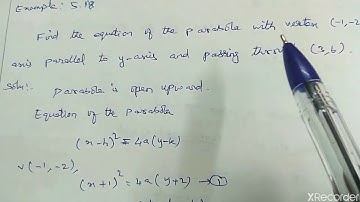 Example: 5.18
Find the equation of the parabola with vertex (-1,-2
axis parallel to y-axis and passing through (3,6).
Soln: Parabola is open upward.
Equation of the Parabola
(x-h)² = 4a(y-k)
V(-1,-2),
(x+1)² = 4a(y+2) → ①
XRecorder